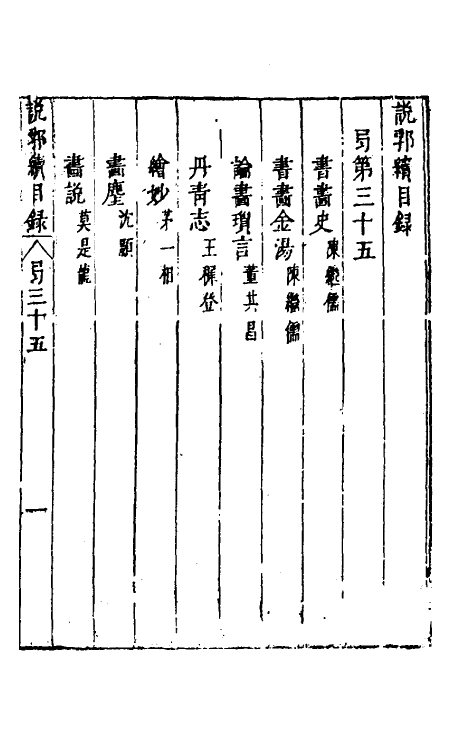 說郛續目録
弓第三十五
書畵史 陳繼儒
書畵金湯 陳繼儒
論畵瑣言 董其昌
丹青志 王穉登
繪妙 茅一相
畵麈 沈顥
畵說 莫是龍
說郛續目録 弓三十五 一